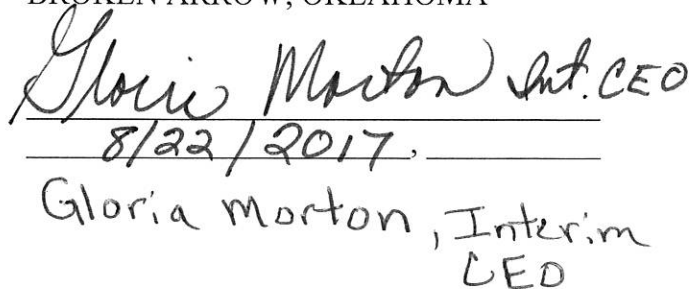 BROKEN ARROW, OKLAHOMA
Gloria Morton Int. CEO
8/22/2017,
Gloria Morton, Interim
CEO